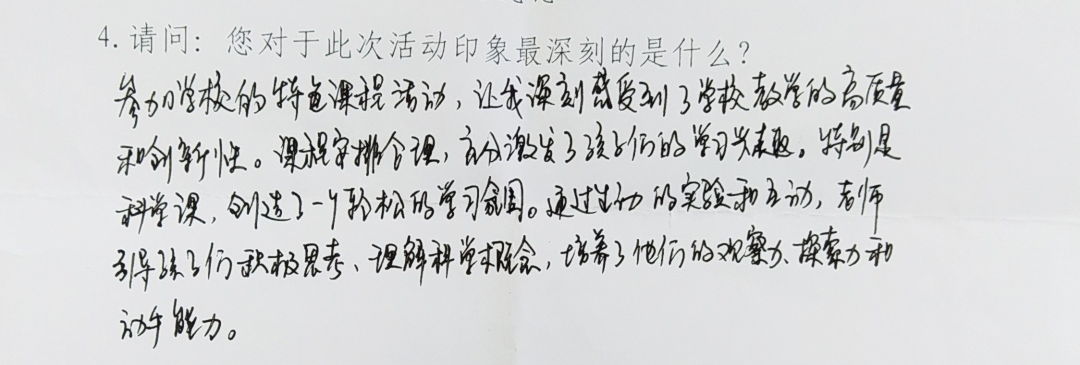 4. 请问：您对于此次活动印象最深刻的是什么？
参加学校的特色课程活动，让我深刻感受到了学校教学的高质量
和创新性。课程安排合理，充分激发了孩子们的学习兴趣。特别是
科学课，创造了一个轻松的学习氛围。通过生动的实验和互动，老师
引导孩子们积极思考、理解科学概念，培养了他们的观察力、探索力和
动手能力。